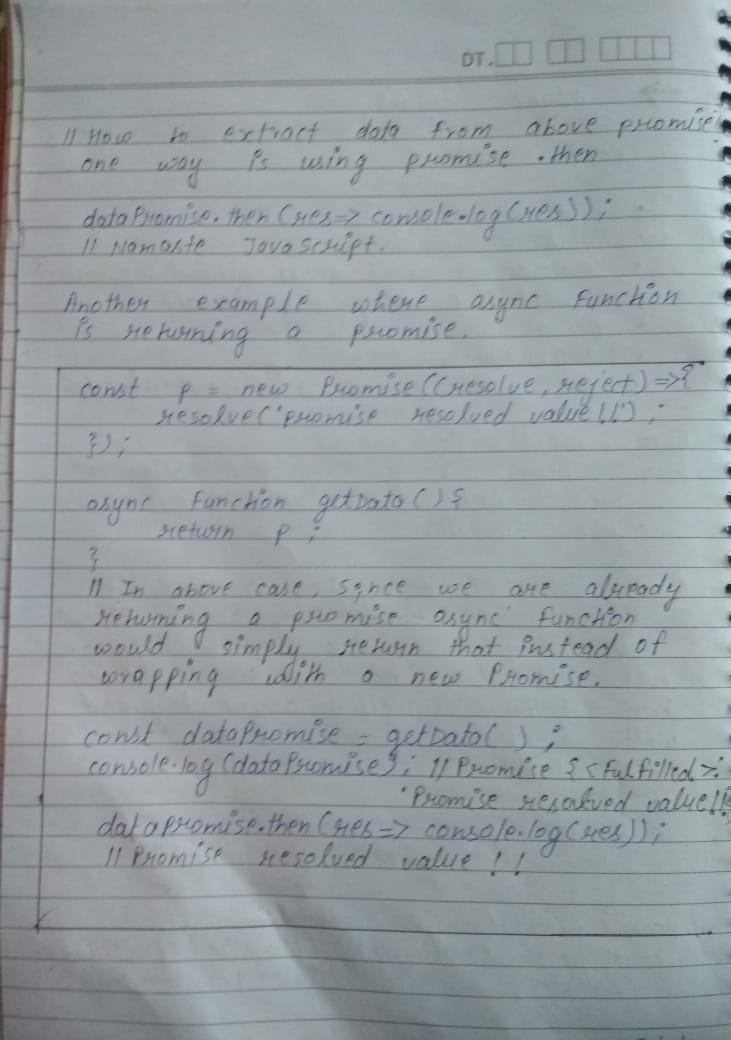 DT.
// How to extract data from above promise
one way is using promise .then
dataPromise.then (res=> console.log(res));
// Namaste JavaScript.
Another example where async Function
is returning a promise.
const p = new Promise((resolve, reject) =>{
resolve('promise resolved value!!');
});
async Function getData () {
return p ;
}
// In above case, since we are already
returning a promise async function
would simply return that instead of
wrapping with a new Promise.
const dataPromise = getData( ) ;
console.log (dataPromise); // Promise {<fulfilled>:
'Promise resolved value!!
datapromise.then (res=> console.log(res));
// Promise resolved value ! !